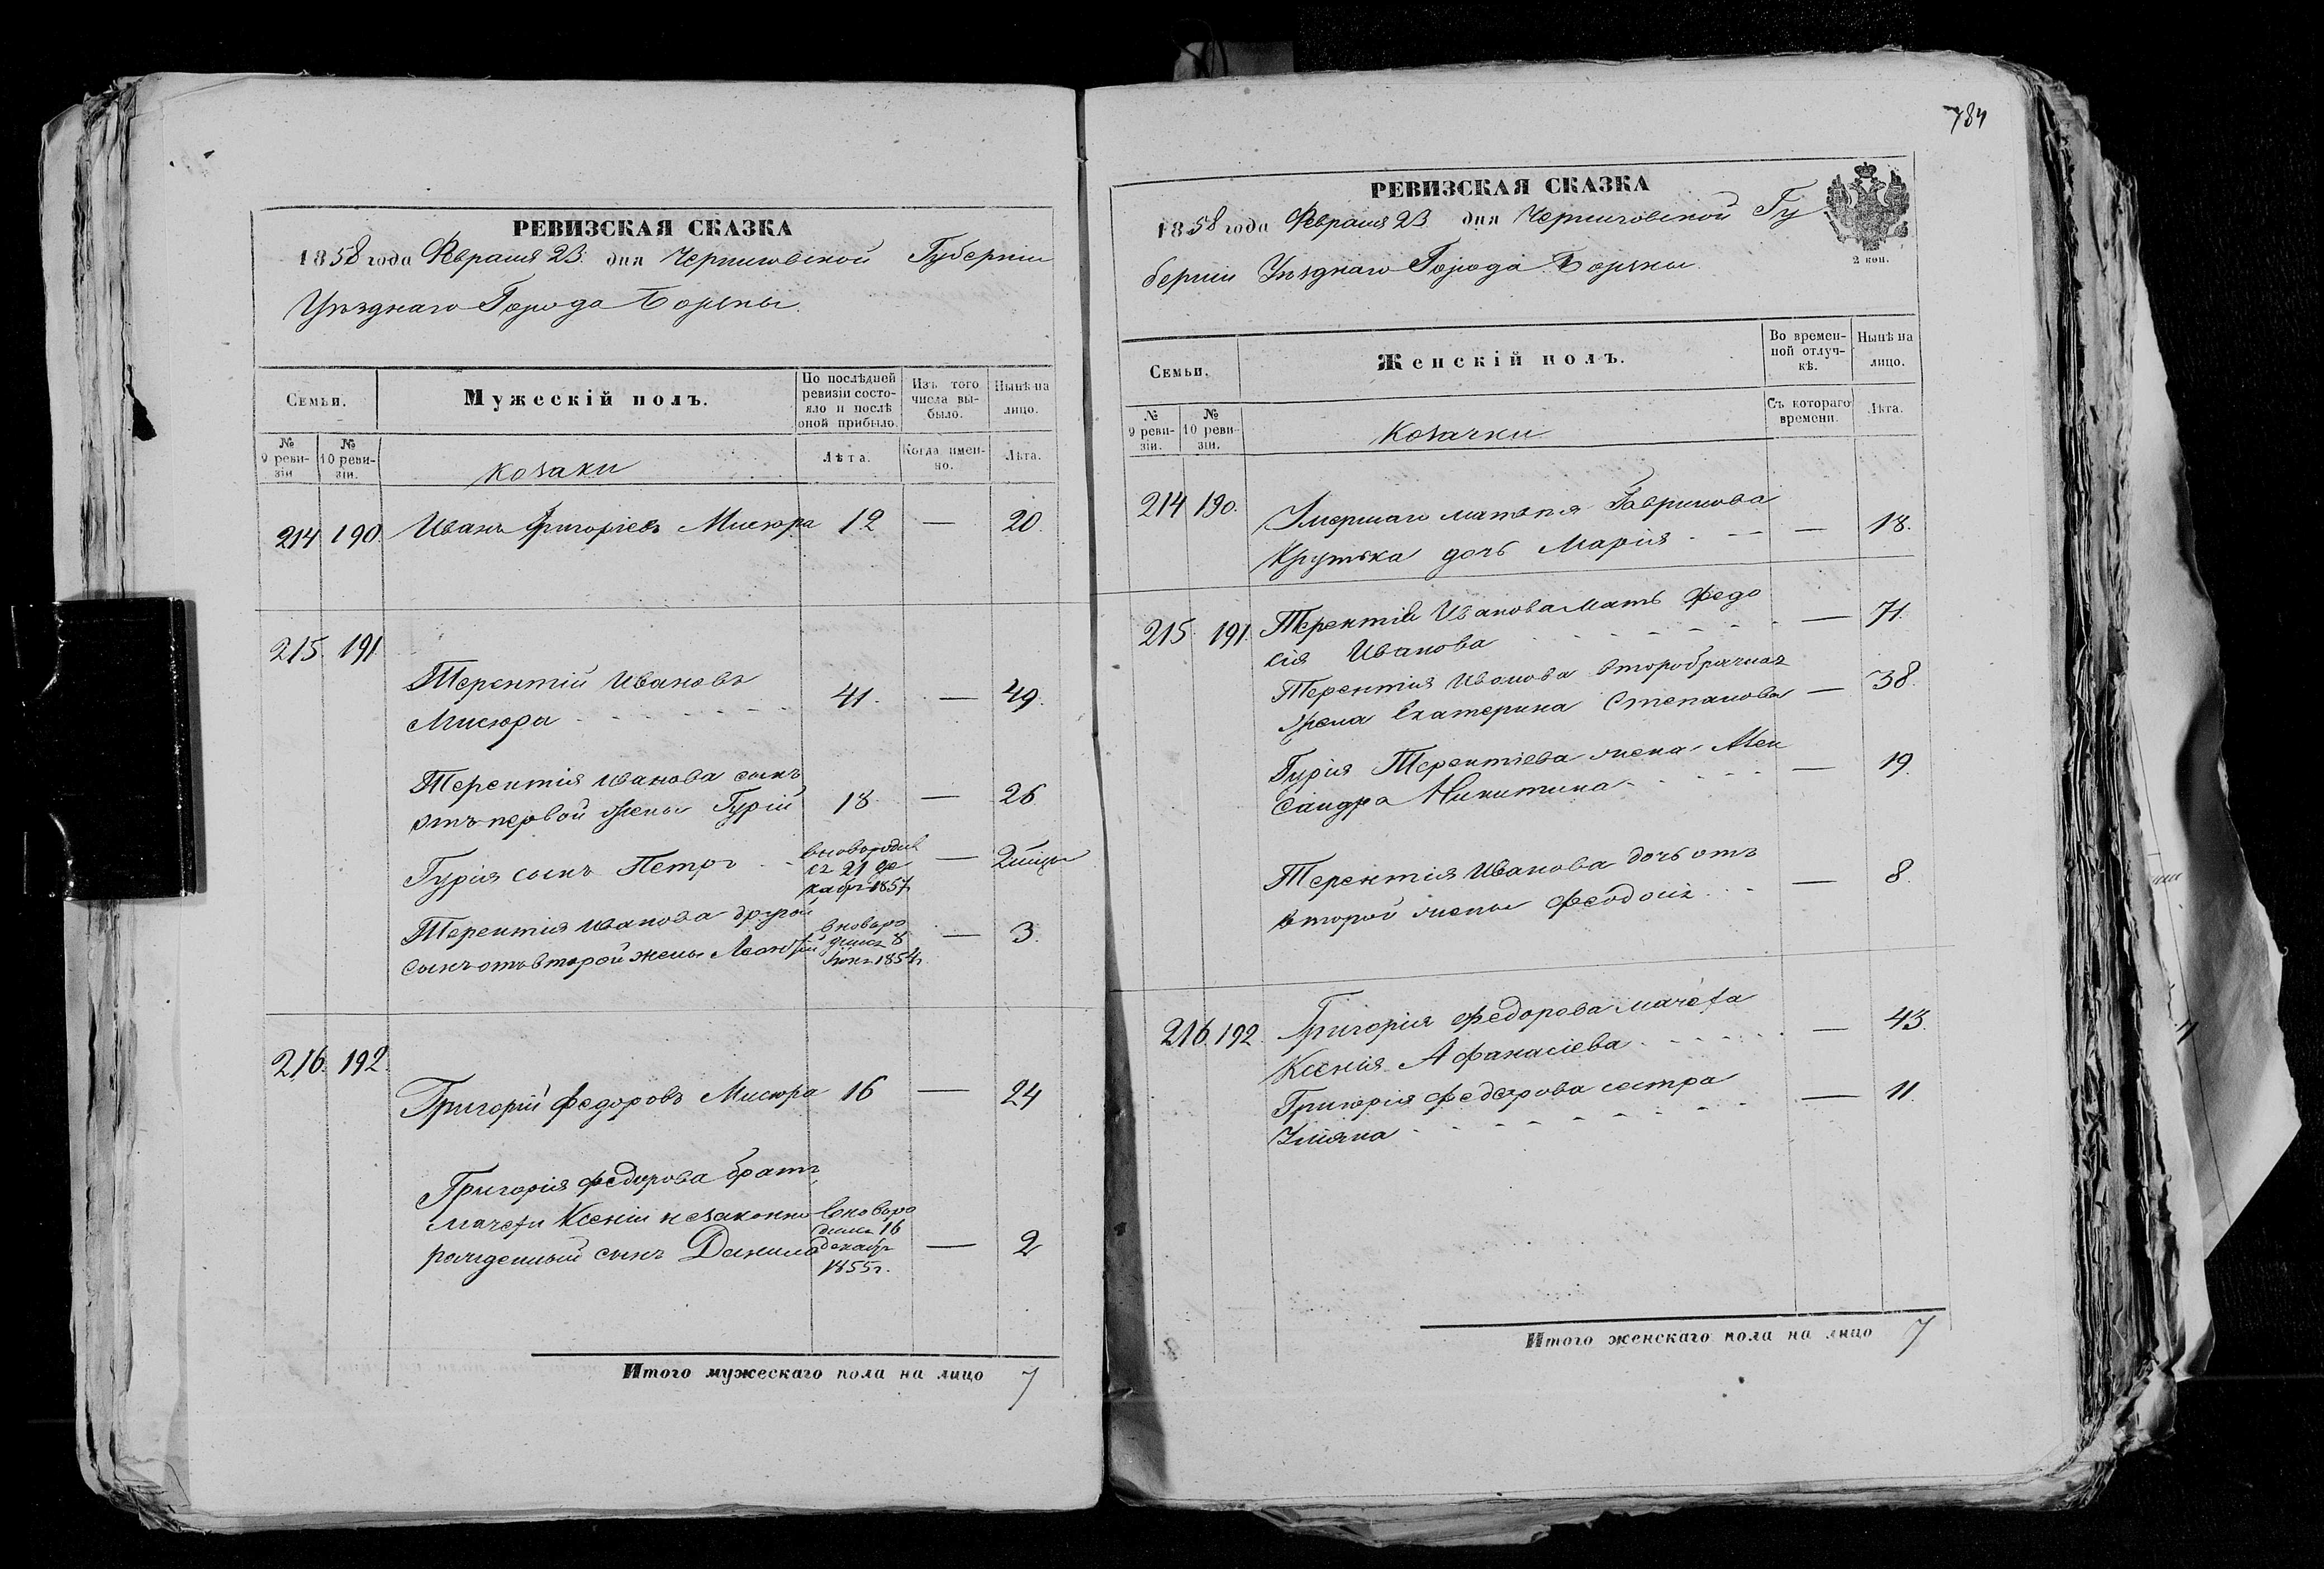 РЕВИЗСКАЯ СКАЗКА
1858 года Февраля 23. дня Черниговской Губерніи
Уѣзднаго Города Борзны.
Семьи.
Мужескій полъ.
По послѣдней ревизіи состояло и послѣ оной прибыло.
Изъ того числа выбыло.
Нынѣ на лицо.
№ 9 ревизіи
№ 10 ревизіи.
козаки
Лѣта.
Когда именно.
Лѣта.
214 190. Иванъ Григоріевъ Мисюра 12 — 20.
215. 191
Терентій Ивановъ
Мисюра 41. — 49.
Терентія Иванова сынъ
отъ первой жены Гурій 18 — 26
Гурія сынъ Петръ вновородив
ся 21 де
кабря 1857
Терентія Иванова другой
сынъ отъ второй жены — 3.
216. 192.
Григорій Федоровъ Мисюра 16 — 24
Григорія Федорова братъ,
мачехи Ксеніи незаконно
рожденный сынъ Данило — 2
вноворо
дился 16
декабря
1855г.
Итого мужескаго пола на лицо 7
784
РЕВИЗСКАЯ СКАЗКА
1858 года Февраля 23. дня Черниговской Гу
берніи Уѣзднаго Города Борзны.
2 коп.
Семьи.
Женскій полъ.
Во временной отлучкѣ.
Нынѣ на лицо.
№ 9 ревизіи.
№ 10 ревизіи.
Козачки
Съ котораго времени.
Лѣта.
214 190.
Умершаго Гаврилова
Крутька дочь Марія — 18.
215. 191. Терентія Иванова мать Федо
сія Иванова — 71.
Терентія Иванова второбрачная
жена Екатерина Степанова — 38.
Гурія Терентіева жена Алек
сандра Никитина — 19.
Терентія Иванова дочь отъ
второй жены — 8.
216. 192. Григорія Федорова мачеха
Ксенія Афанасіева — 43.
Григорія Федорова сестра
Ульяна — 11.
Итого женскаго пола на лицо 7